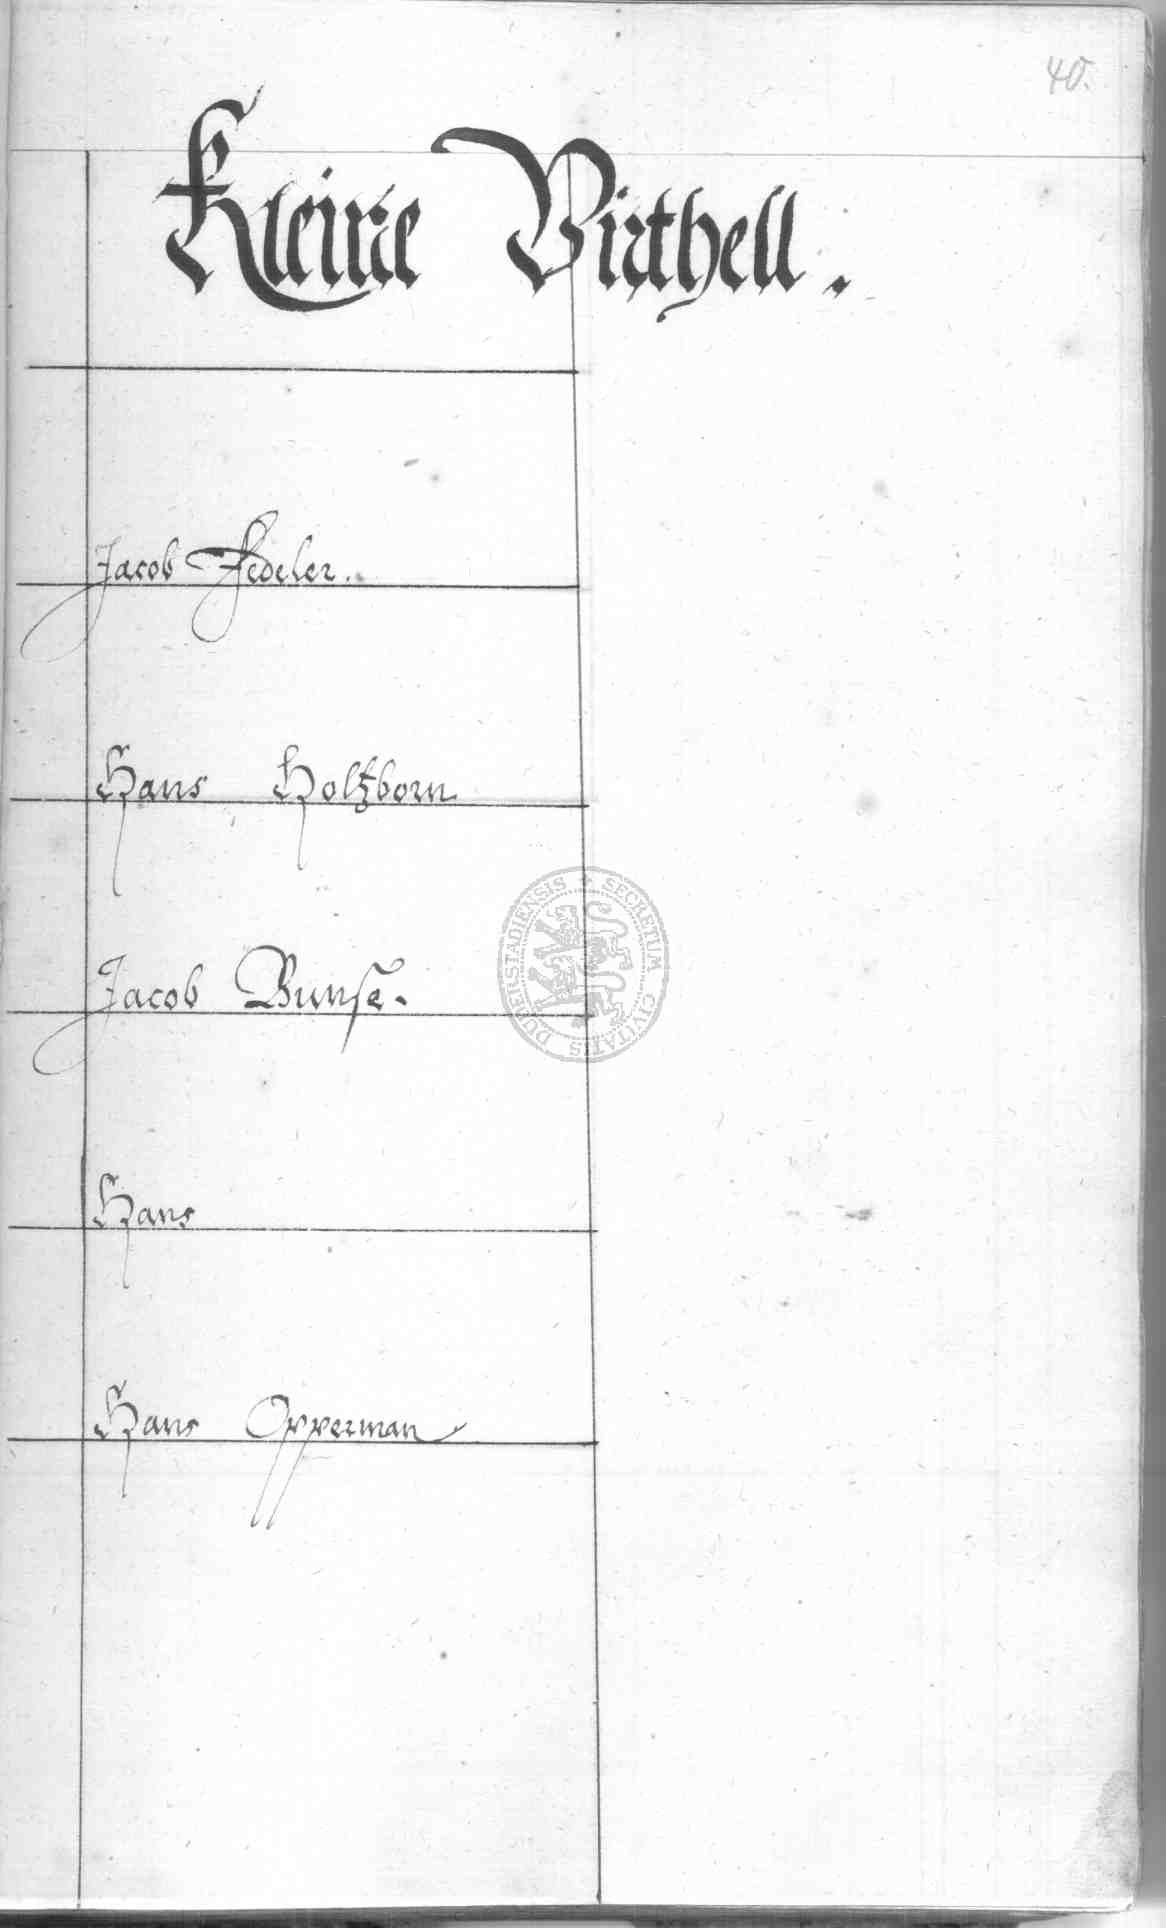 40.
Kleine Virthell.
Jacob Fedeler.
Hans Holtzborn
Jacob Bunse.
SECRETUM CIVITATIS DUDERSTADIENSIS
Hans
Hans Opperman